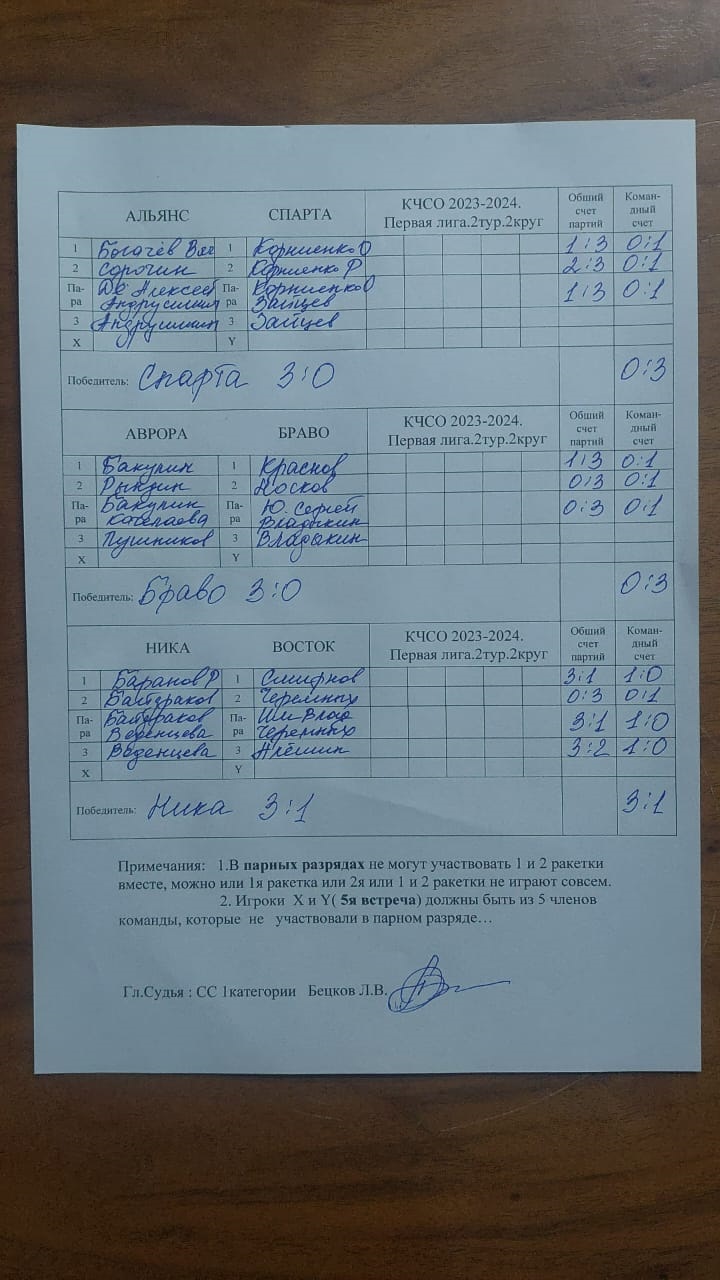 АЛЬЯНС СПАРТА КЧСО 2023-2024. Первая лига.2тур.2круг Общий счет партий Коман-дный счет
1 Богачёв Вяч 1 Корниенко О 1:3 0:1
2 Сорочин 2 Корниенко Р 2:3 0:1
Па-ра Де Алексей Па-ра Корниенко О 1:3 0:1
Андрушкин Зайцев
3 Андрушкин 3 Зайцев
X Y
Победитель: Спарта 3:0 0:3
АВРОРА БРАВО КЧСО 2023-2024. Первая лига.2тур.2круг Общий счет партий Коман-дный счет
1 Бакулин 1 Краснов 1:3 0:1
2 Рындин 2 Носков 0:3 0:1
Па-ра Бакулин Па-ра Ю. Сергей 0:3 0:1
Владыкин
3 Пушников 3 Владыкин
X Y
Победитель: Браво 3:0 0:3
НИКА ВОСТОК КЧСО 2023-2024. Первая лига.2тур.2круг Общий счет партий Коман-дный счет
1 Баранов Р 1 Смирнов 3:1 1:0
2 Байбраков 2 Черемных 0:3 0:1
Па-ра Байбраков Па-ра Им Влад 3:1 1:0
Веденцева Черемных
3 Веденцева 3 Алёшин 3:2 1:0
X Y
Победитель: Ника 3:1 3:1
Примечания: 1.В парных разрядах не могут участвовать 1 и 2 ракетки
вместе, можно или 1я ракетка или 2я или 1 и 2 ракетки не играют совсем.
2. Игроки X и Y( 5я встреча) должны быть из 5 членов
команды, которые не участвовали в парном разряде…
Гл.Судья : СС 1категории Бецков Л.В.